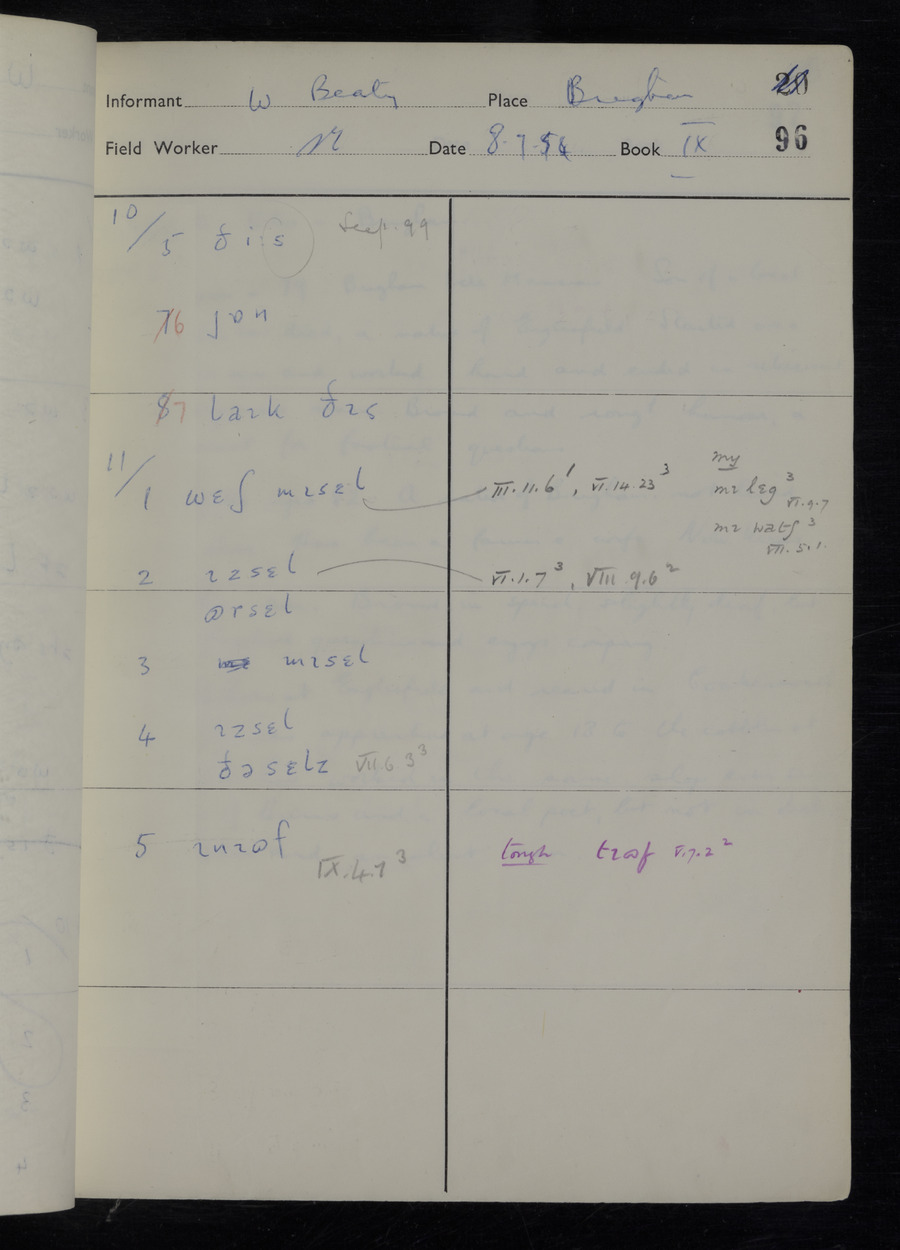 Informant W Beaty Place Brigham 20
Field Worker Date 8.7.54 Book IX 96
10/ 5 ðis See p. 99
6 jɒn
7 laɪk ðɪs
11/ 1 wɛʃ mɪsɛl III.11.6¹, VI.14.23³ my
mɪ lɛg³ VI.9.7
mɪ watʃ³ VII.5.1.
2 ɪzsɛl VI.1.7³, VIII.9.6²
ørsɛl
3 mɪsɛl
4 ɪzsɛl
ðəsɛlz VII.6.3³
5 ɪnɪɷf tough tɪɷf V.7.2²
IX.4.7³